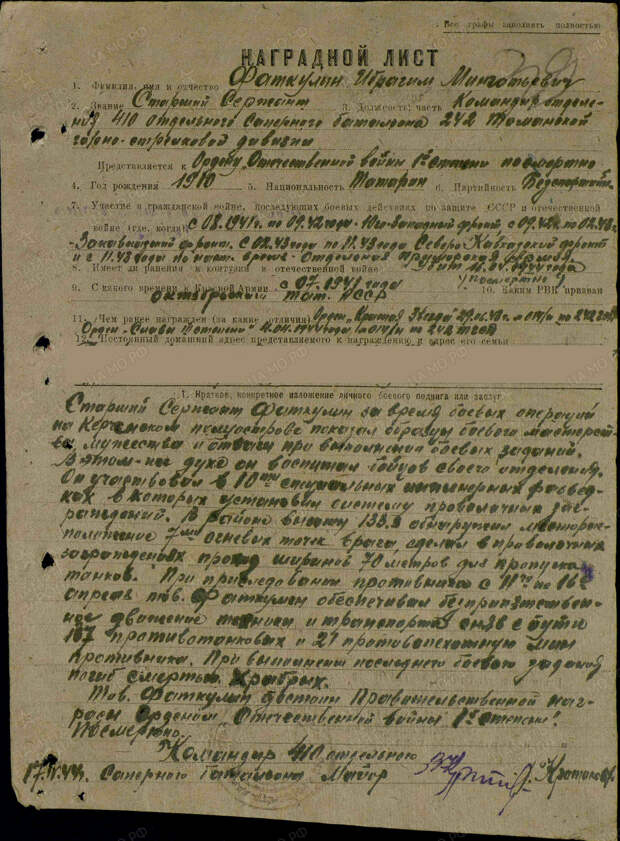 Все графы заполнять полностью
НАГРАДНОЙ ЛИСТ
1. Фамилия, имя и отчество Фаткулин Ибрагим
2. Звание Старший Сержант 3. Должность, часть Командир отделе-
ния 410 отдельного Саперного батальона 242 Таманской
горно-стрелковой дивизии
Представляется к Ордену „Отечественной войны 1й степени посмертно
4. Год рождения 1910 5. Национальность Татарин 6. Партийность
7. Участие в гражданской войне, последующих боевых действиях по защите СССР и отечественной
войне (где, когда) с 08.1941г. по 09.42 года Юго-Западный фронт, с 09.42г. по 02.43г.
Закавказский фронт. С 02.43 года по 11.43 года Северо Кавказский фронт
и с 11.43 года по наст. время - Отдельная Приморская Армия
8. Имеет ли ранения и контузии в отечественной войне Убит 04.1944 года
посмертно
9. С какого времени в Красной Армии с 07.1941 года 10. Каким РВК призван
Октябрьский Тат. АССР
11. Чем ранее награжден (за какие отличия) Орден „Красная Звезда" по 242 ГСД
Орден „Славы 04.1944 года по 242 ГСД
12. Постоянный домашний адрес представляемого к награждению и адрес его семьи
1. Краткое, конкретное изложение личного боевого подвига или заслуг
Старший Сержант Фаткулин за время боевых операций
на Керченском полуострове показал образцы боевого мастерст-
ва мужества и отваги при выполнении боевых заданий.
В этом-же духе он воспитал бойцов своего отделения.
Он участвовал в 10ти специальных инженерных развед-
ках в которых установил систему проволочных заг-
раждений. В районе высоты 133.3 обнаружил месторас-
положение 7ми огневых точек врага, сделал в проволочных
заграждениях проход шириной 70 метров для пропуска
танков. При преследовании противника с 11го по 16е
апреля тов. Фаткулин обеспечивал беспрепятствен-
ное движение техники и транспорта сняв с пути
167 противотанковых и 21 противопехотную мин
противника. При выполнении последнего боевого задания
погиб смертью Храбрых.
Тов. Фаткулин достоин Правительственной наг-
рады Орденом „Отечественной войны 1й степени".
Посмертно.
Командир 410 отдельного
17.IV.44г. Саперного Батальона Майор